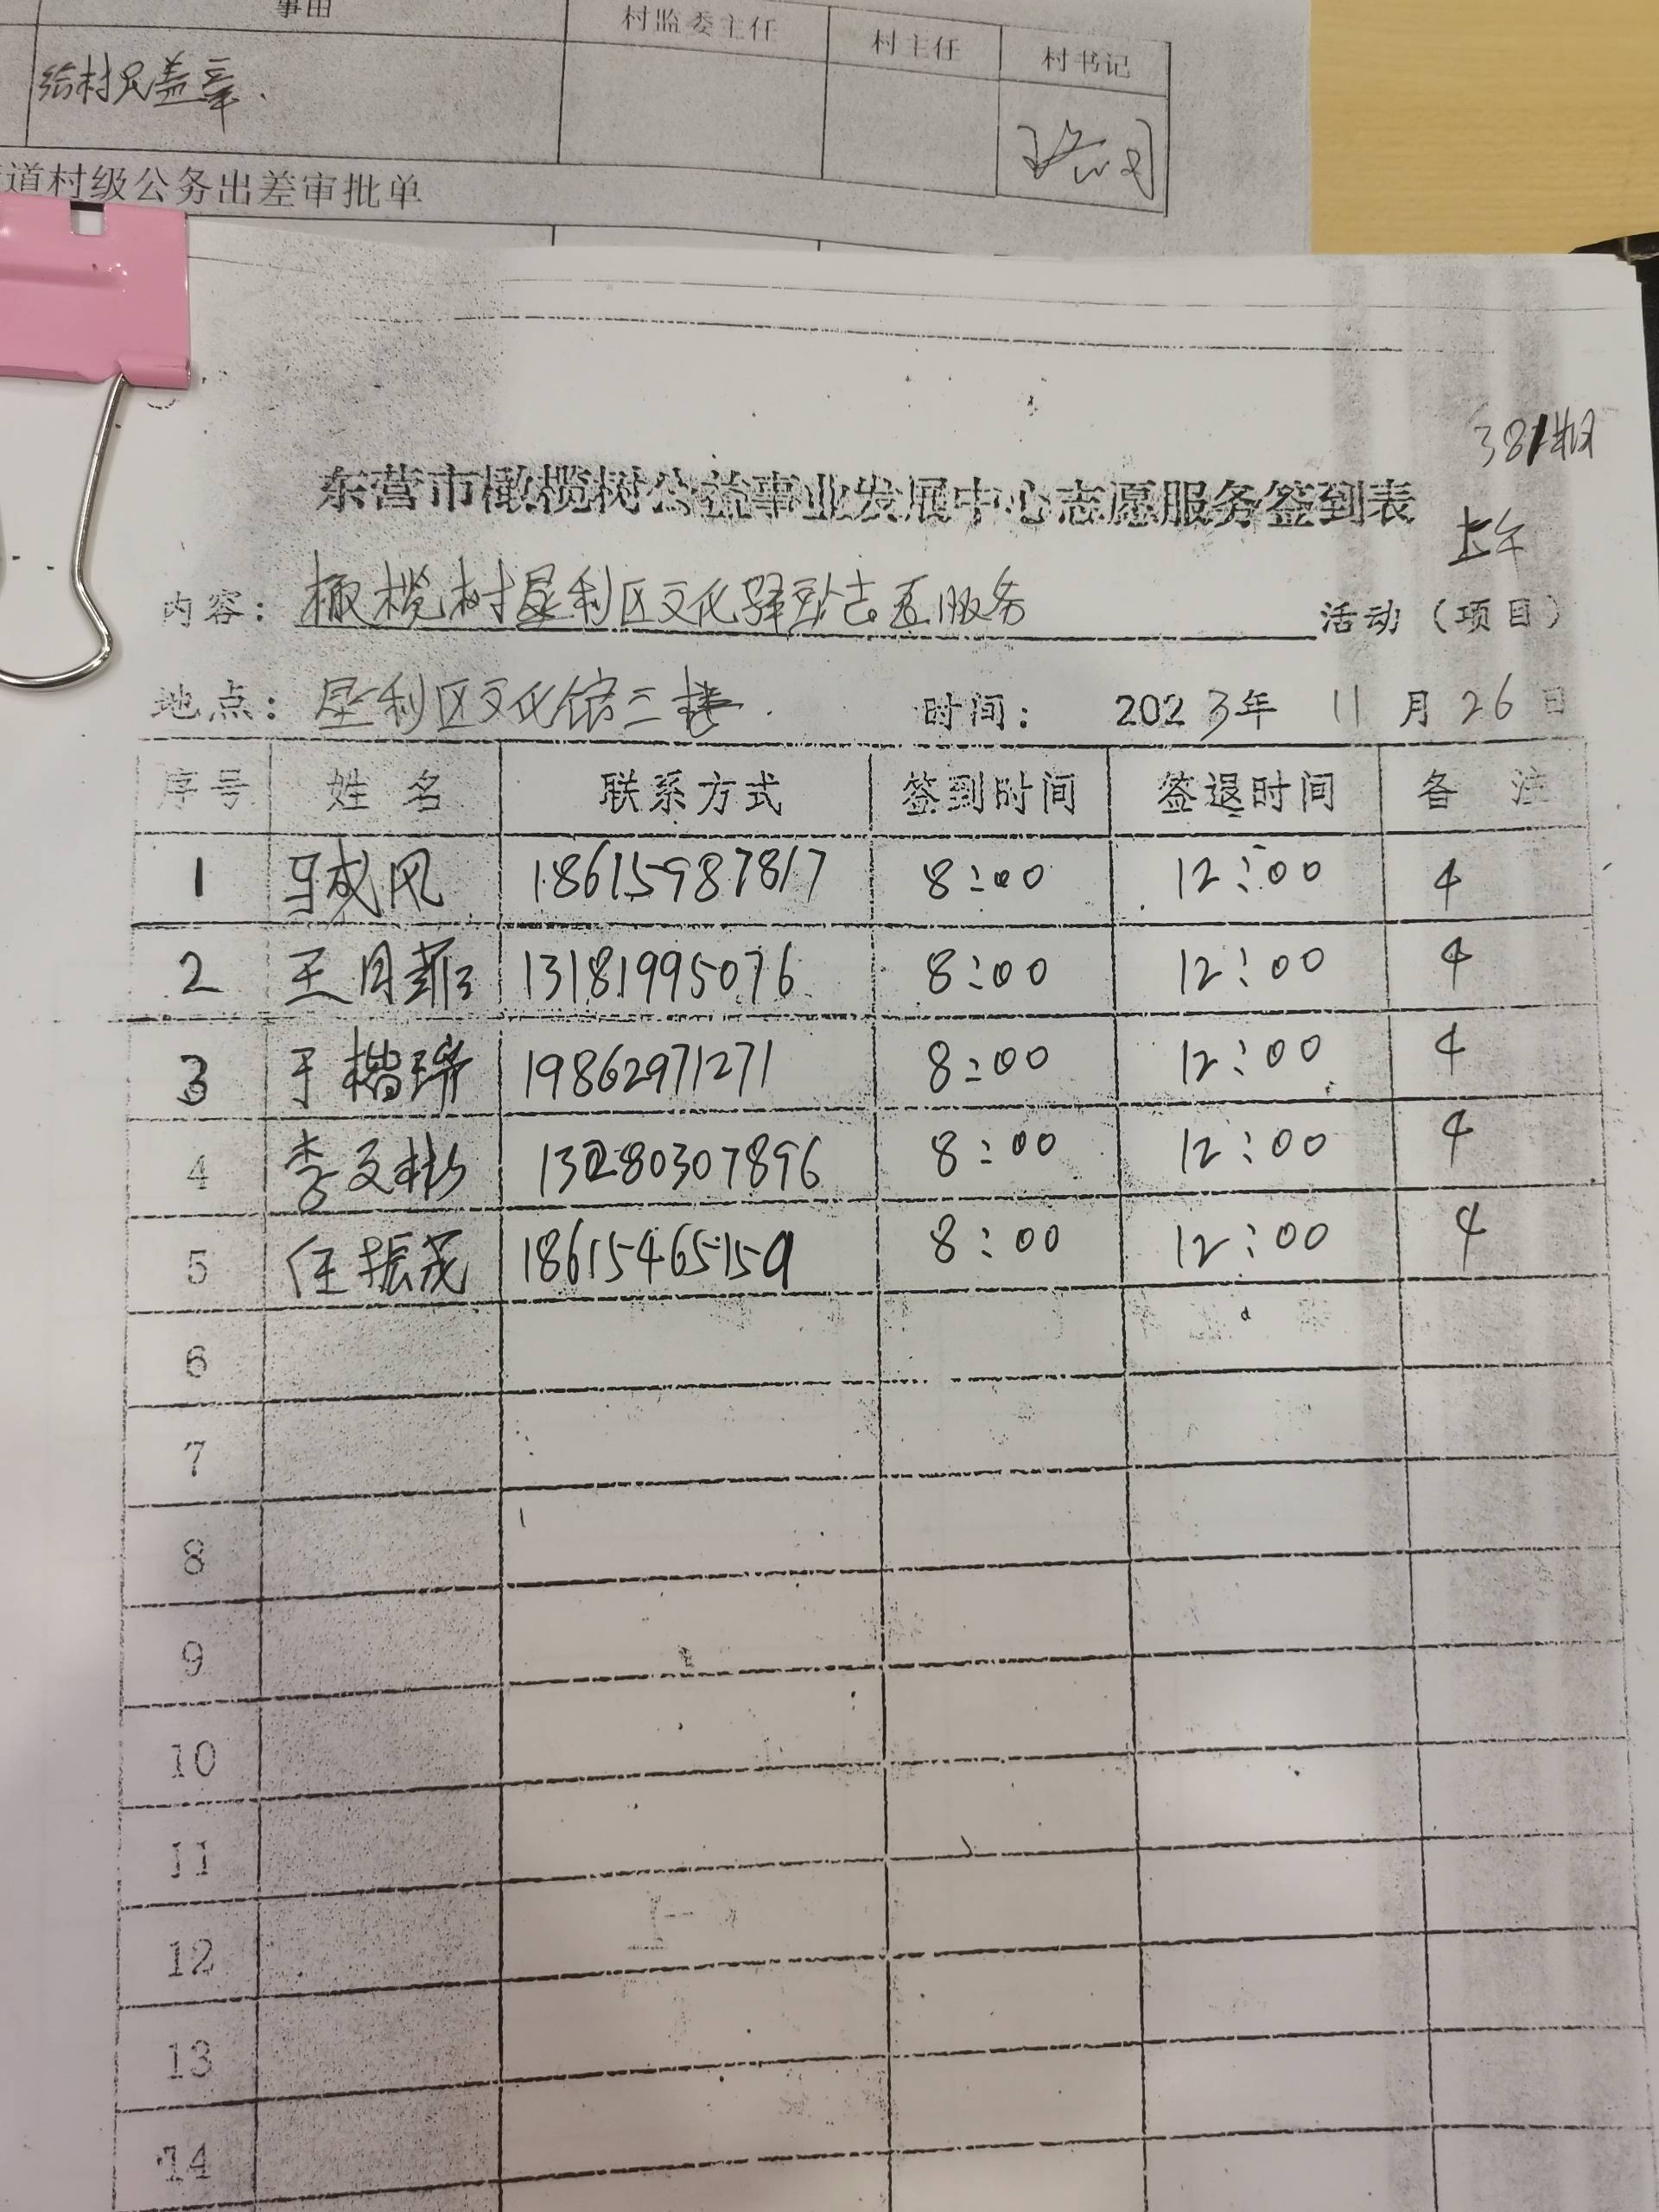 事由 村监委主任 村主任 村书记
给村民盖章.
道村级公务出差审批单
381期
东营市橄榄树公益事业发展中心志愿服务签到表
上午
内容: 橄榄树垦利区文化驿站志愿服务 活动(项目)
地点: 垦利区文化馆三楼. 时间: 2023年 11月26日
序号 姓名 联系方式 签到时间 签退时间 备注
1 马成风 18615987817 8:00 12:00 4
2 王月菲 13181995076 8:00 12:00 4
3 于楷瑞 19862971271 8:00 12:00 4
4 李文彬 13280307896 8:00 12:00 4
5 任振茂 18615465159 8:00 12:00 4
6
7
8
9
10
11
12
13
14